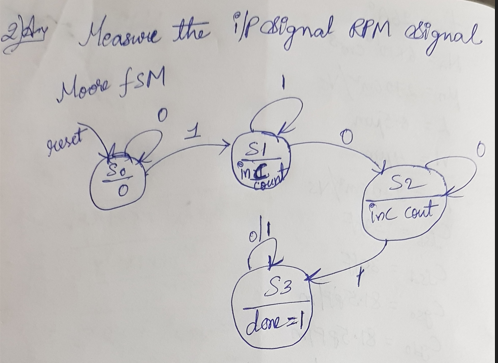 2) Ans Measure the i/p signal RPM signal
Moore fSM
reset
0
S0
0
1
1
S1
inc
count
0
S2
inc cout
0
1
0/1
S3
done=1